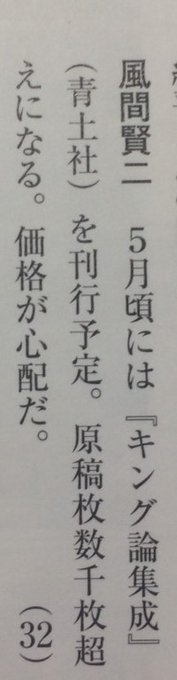 風間賢二　5月頃には『キング論集成』
（青土社）を刊行予定。原稿枚数千枚超
えになる。価格が心配だ。　（32）